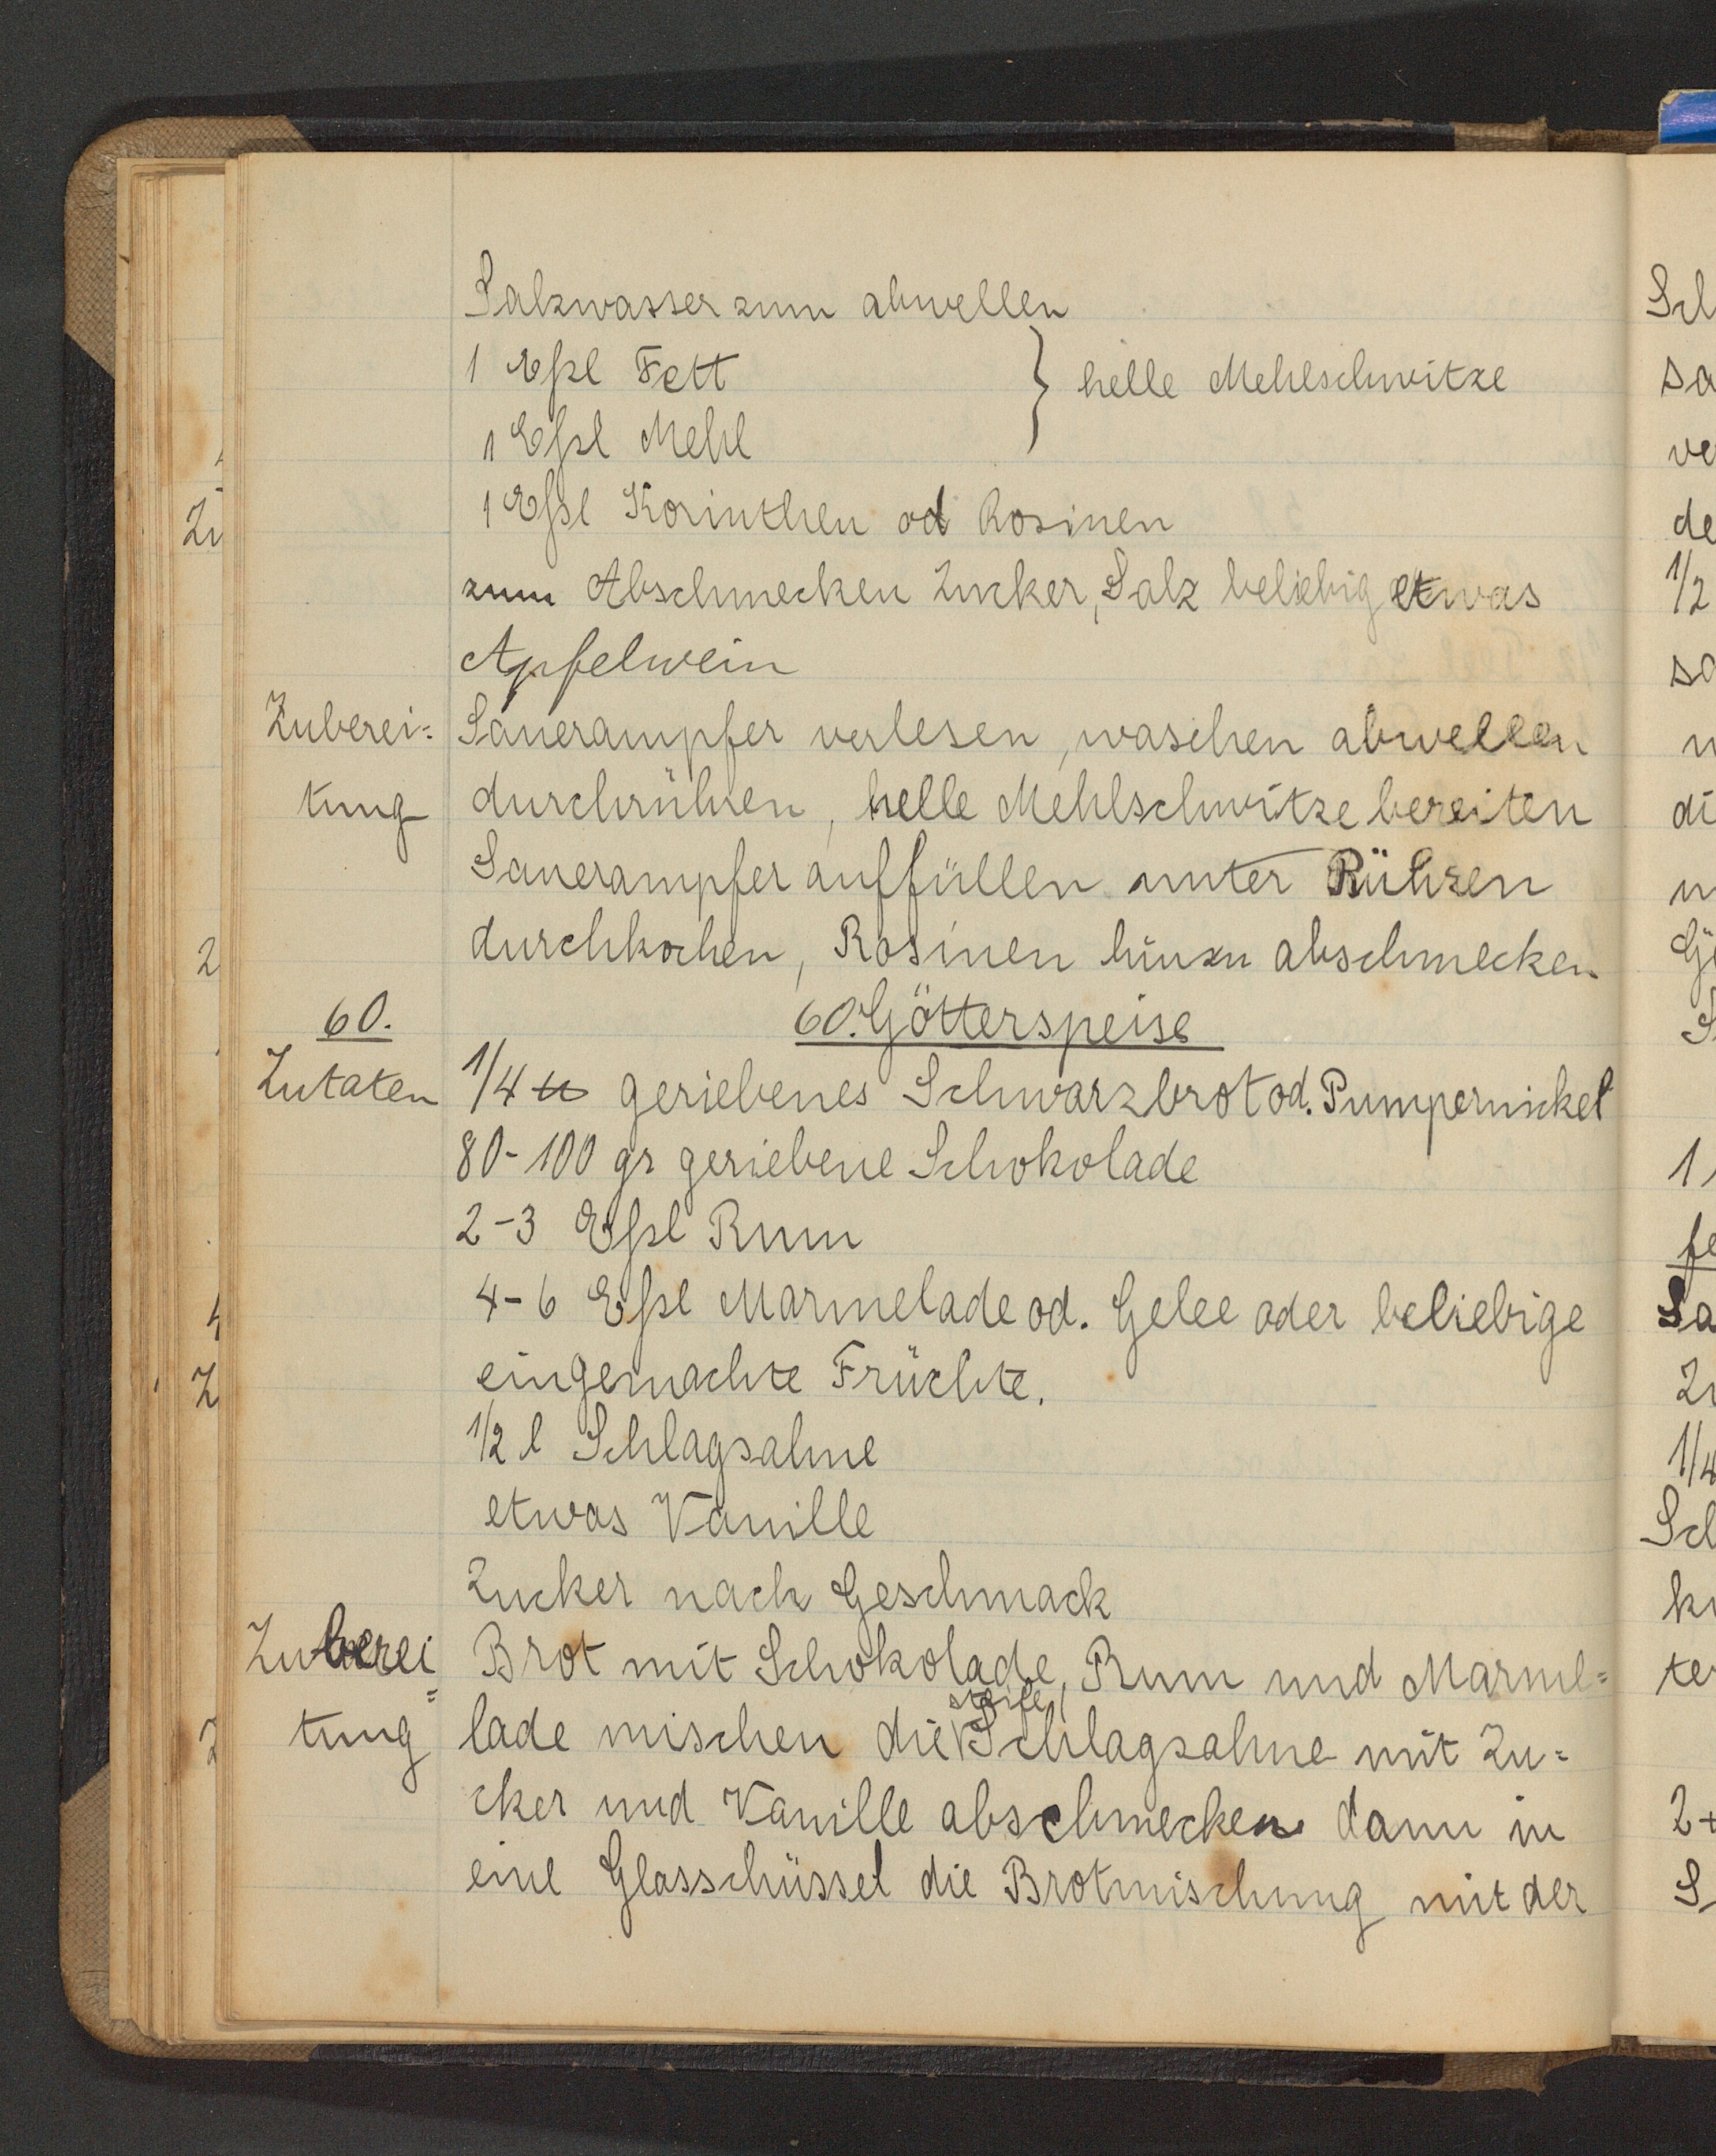 Salzwasser zum abwellen
1 Eßl Fett } helle Mehlschwitze
1 Eßl Mehl
1 Eßl Korinthen od Rosinen
zum Abschmecken Zucker, Salz beliebig etwas
Apfelwein
Zuberei= Sauerampfer verlesen, waschen abwellen
tung durchrühren, helle Mehlschwitze bereiten
Sauerampfer auffüllen unter Rühren
durchkochen, Rosinen hinzu abschmecken
60. 60. Götterspeise
Zutaten 1/4 ℔ geriebenes Schwarzbrot od. Pumpernickel
80-100 gr geriebene Schokolade
2-3 Eßl Rum
4-6 Eßl Marmelade od. Gelee oder beliebige
eingemachte Früchte.
1/2 l Schlagsahne
etwas Vanille
Zucker nach Geschmack
Zuberei= Brot mit Schokolade, Rum und Marme=
tung lade mischen die steife Schlagsahne mit Zu=
cker und Vanille abschmecken dann in
eine Glasschüssel die Brotmischung mit der